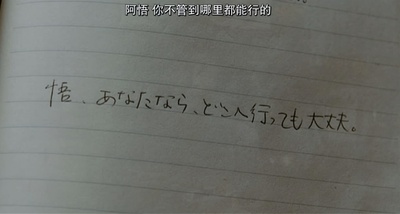 阿悟 你不管到哪里都能行的
悟、あなたなら、どこへ行っても大丈夫。